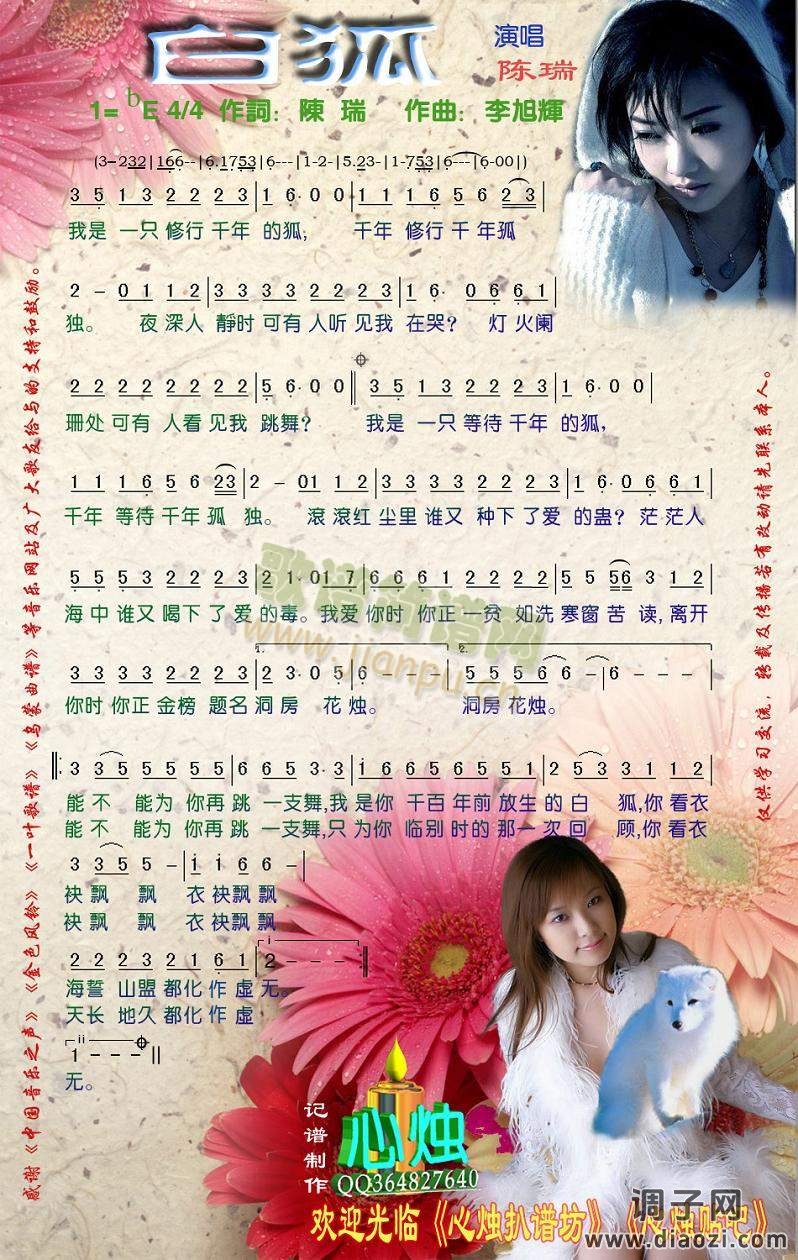 白狐
演唱
陈瑞
1= bE 4/4 作詞: 陳 瑞 作曲: 李旭輝
(3-232|166--|6.1753|6---|1-2-|5.23-|1-753|6---|6-00|)
3 5 1 3 2 2 2 3|1 6· 0 0|1 1 1 6 5 6 2 3|
我是 一只 修行 千年 的狐, 千年 修行 千 年孤
2 - 0 1 1 2|3 3 3 3 2 2 2 3|1 6· 0 6 6 1|
独。 夜 深人 靜时 可有 人听 见我 在哭? 灯 火阑
2 2 2 2 2 2 2 2|5 6· 0 0‖3 5 1 3 2 2 2 3|1 6· 0 0|
珊处 可有 人看 见我 跳舞? 我是 一只 等待 千年 的狐,
1 1 1 6 5 6 23|2 - 01 12|3 3 3 3 2 2 2 3|1 6· 0 6 6 1|
千年 等待 千年 孤 独。 滚 滚红 尘里 谁又 种下 了爱 的蛊? 茫茫人
5 5 5 3 2 2 2 3|2 1· 01 7|6 6 6 1 2 2 2 2|5 5 56 3 1 2|
海中 谁又 喝下 了爱 的毒。我爱 你时 你正 一贫 如洗 寒窗 苦 读,离开
3 3 3 3 2 2 2 3|2 3· 0 5|6 - - -|5 5 5 5 6 6|6 - - -|
1.
2.
你时 你正 金榜 题名 洞 房 花 烛。 洞房 花烛。
‖: 3 3 5 5 5 5 5|6 6 5 3· 3|i 6 6 5 6 5 5 1|2 5 3 3 1 1 2|
能 不 能为 你再 跳 一支舞,我是 你 千百 年前 放生 的白 狐,你看衣
能 不 能为 你再 跳 一支舞,只为 你 临别 时的 那一 次回 顾,你看衣
3 3 5 5 -|i i 6 6 -|
袂 飘 飘 衣 袂飘 飘
袂 飘 飘 衣 袂飘 飘
2 2 2 3 2 1 6 1|2 - - -:‖
i
海誓 山盟 都化 作 虚 无。
天长 地久 都化 作 虚
ii
1 - - -‖
无。
感谢《中国音乐之声》《金色风铃》《一叶歌谱》《乌蒙曲谱》等音乐网站及广大歌友给与的支持和鼓励。
仅供学习交流,转载及传播若有改动请先联系本人。
歌谱简谱网
www.jianpu.cn
记谱制作
心烛
QQ364827640
欢迎光临《心烛扒谱坊》《心烛贴吧》
调子网
www.diaozi.com